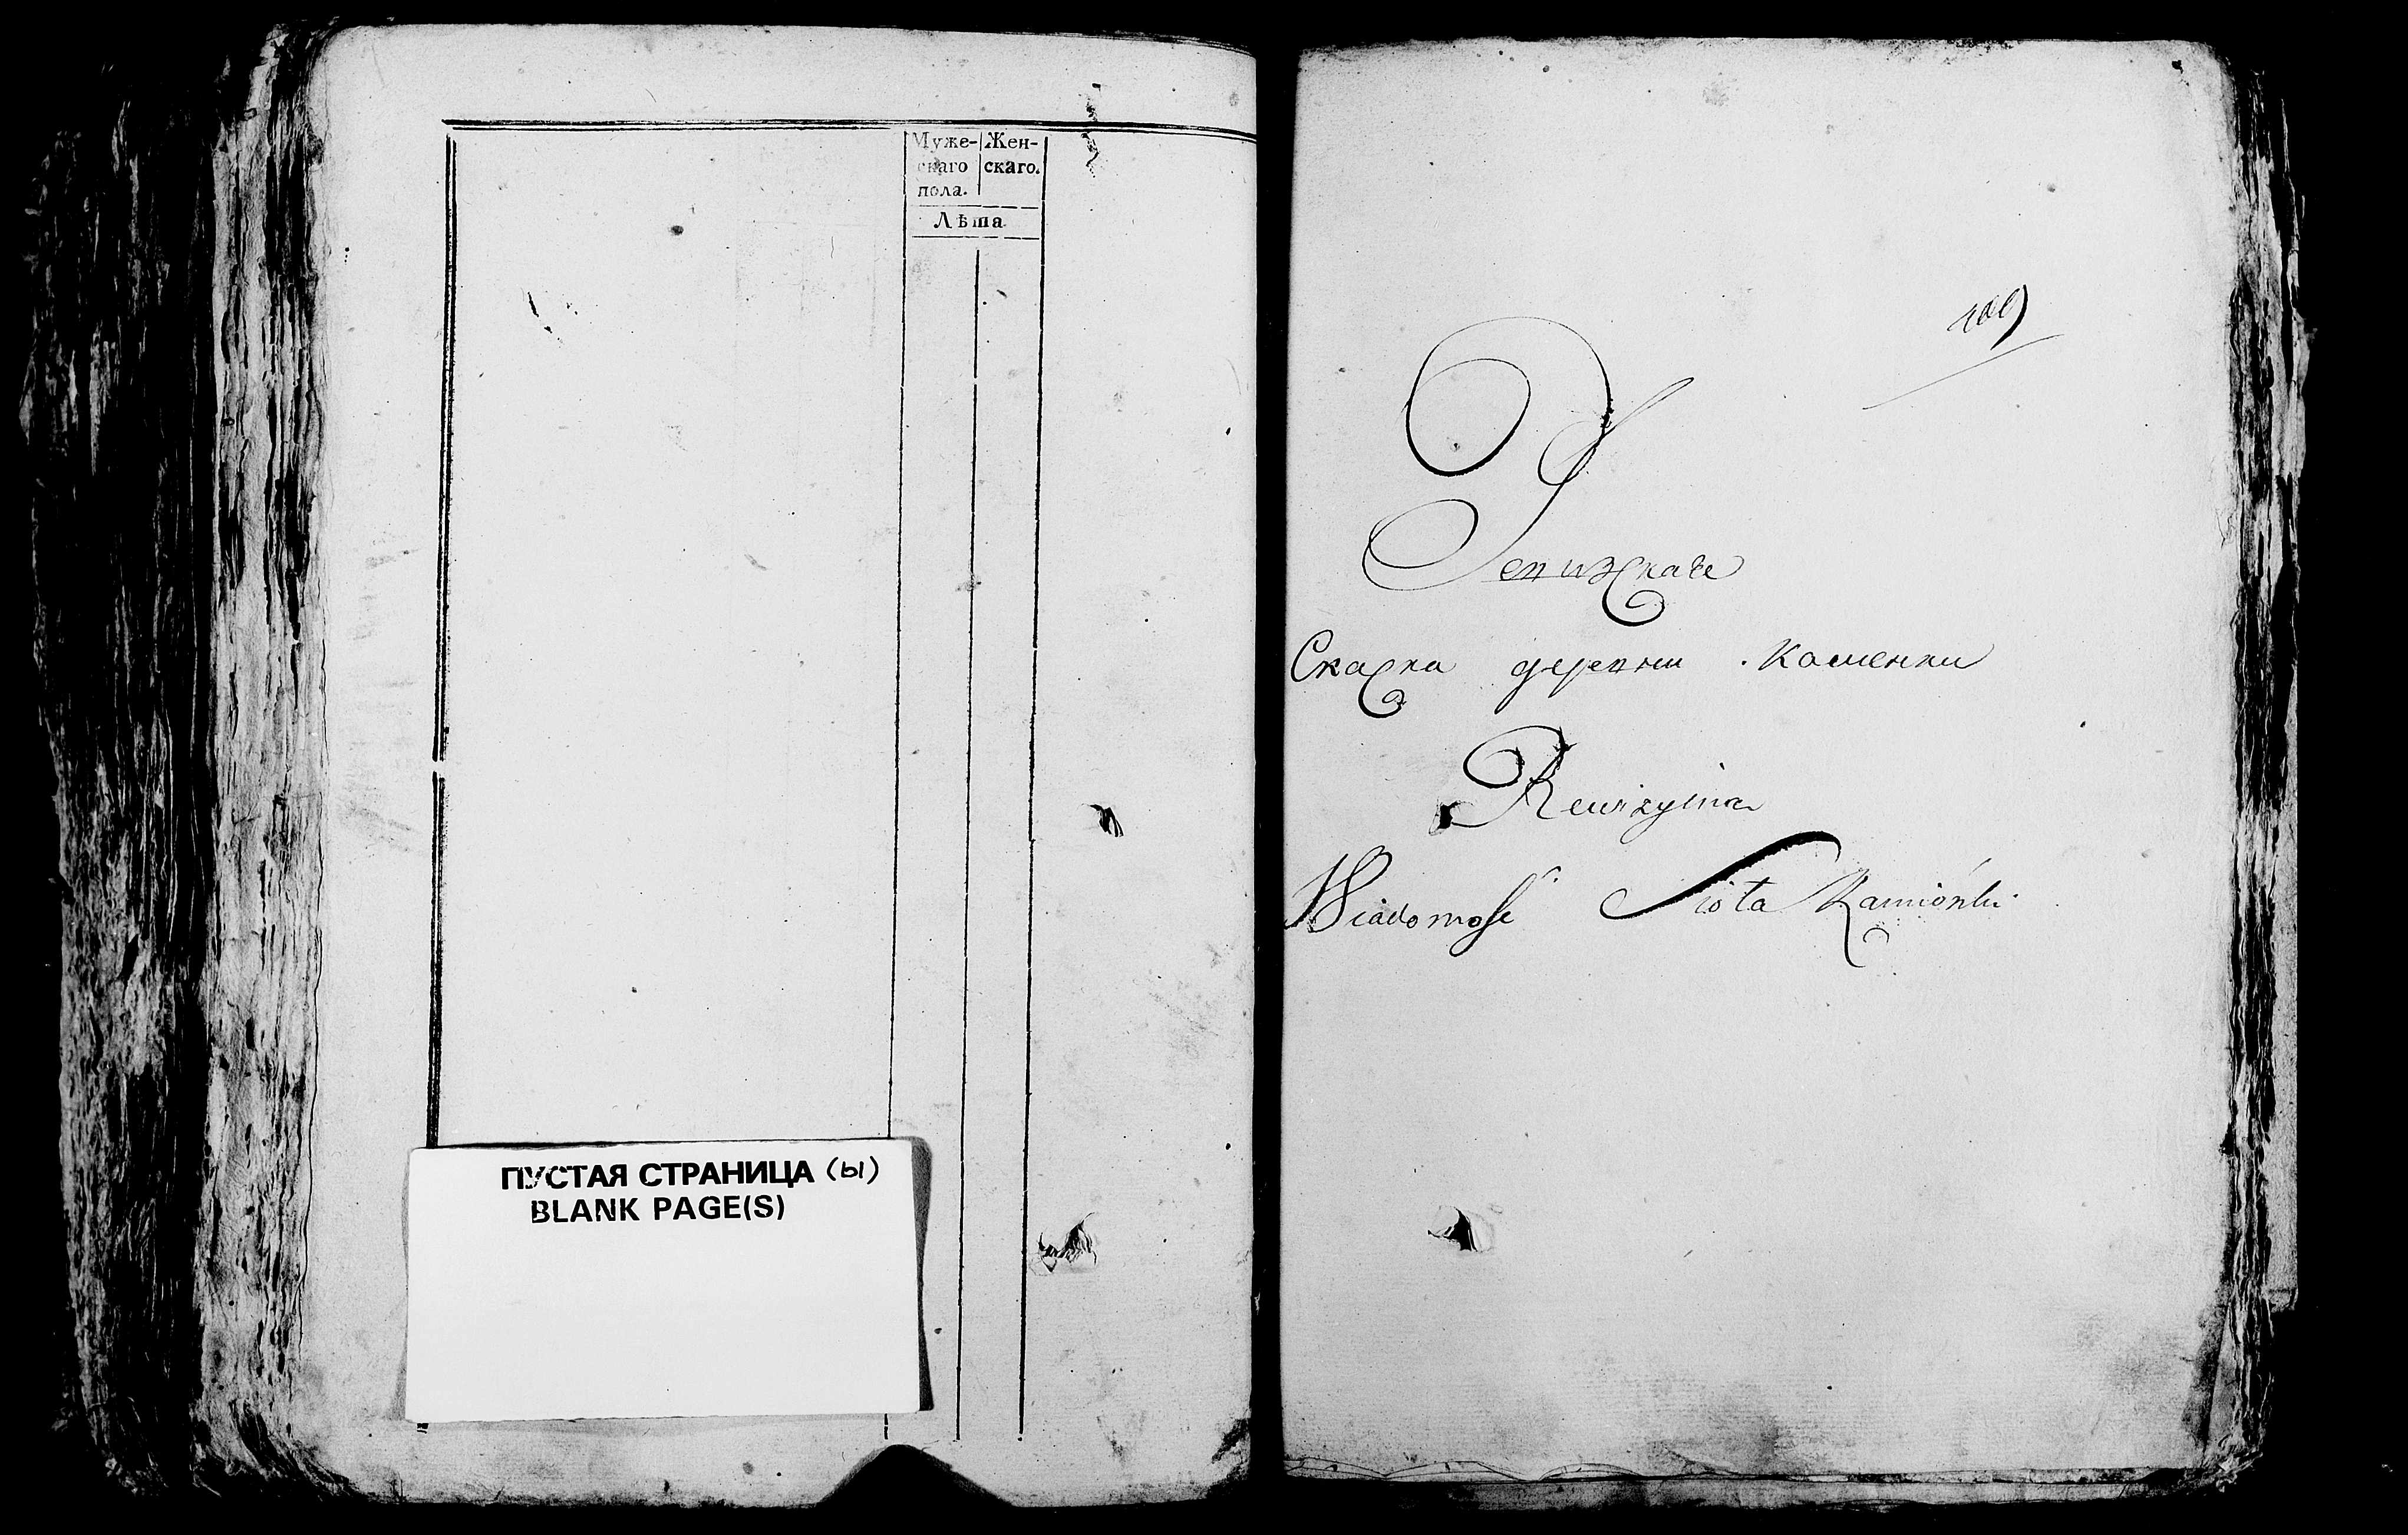 Муже- Жен-
скаго скаго.
пола.
Лѣта.
ПУСТАЯ СТРАНИЦА (ы)
BLANK PAGE(S)
Ревизская
Скаска деревни Каменки
Rewizyina
Wiadomość Sioła Kamionki